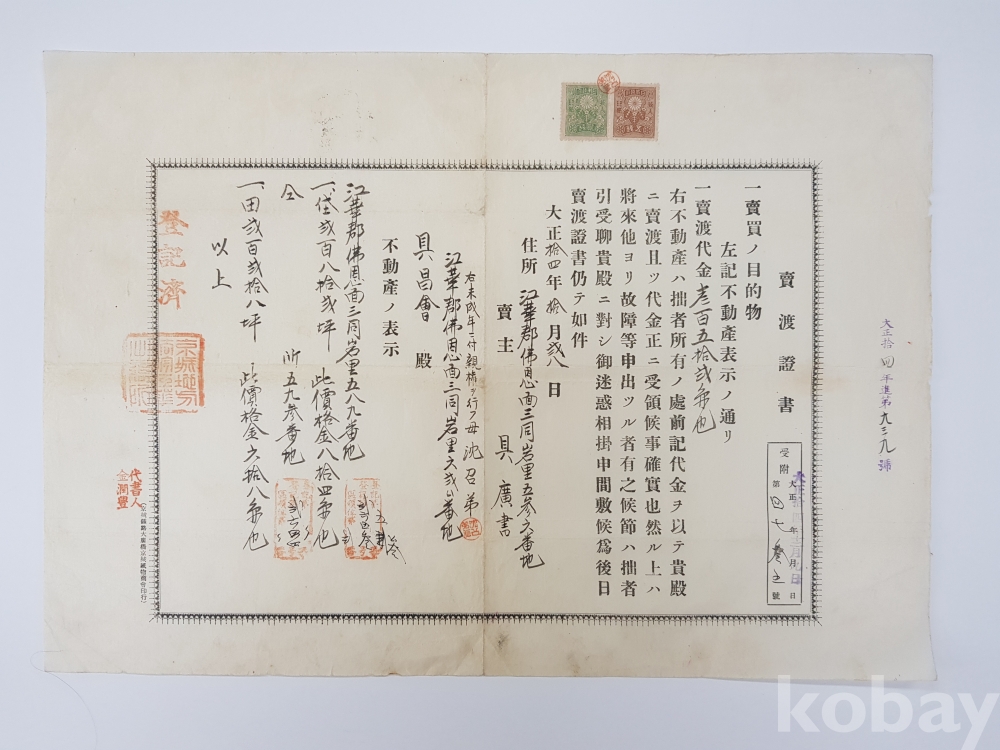 大正拾四年進第九三九號
受附
大正 年 月 日
第四七 號
賣渡證書
一賣買ノ目的物
左記不動産表示ノ通リ
一賣渡代金參百五拾貳圓也
右不動産ハ拙者所有ノ處前記代金ヲ以テ貴殿
ニ賣渡且ツ代金正ニ受領候事確實也然ル上ハ
將來他ヨリ故障等申出ツル者有之候節ハ拙者
引受聊貴殿ニ對シ御迷惑相掛申間敷候爲後日
賣渡證書仍テ如件
大正拾四年拾月貳八日
住所 江華郡佛恩面三同岩里五參六番地
賣主 具廣書
右未成年ニ付親權ヲ行フ母沈召弟
江華郡佛恩面三同岩里六貳 番地
具昌會 殿
不動産ノ表示
江華郡佛恩面三同岩里五八九番地
一、垈貳百八拾貳坪 此價格金八拾四圓也
仝 所五九參番地
一、田貳百貳拾八坪 此價格金六拾八圓也
以上
登記濟
代書人
金潤豐
kobay